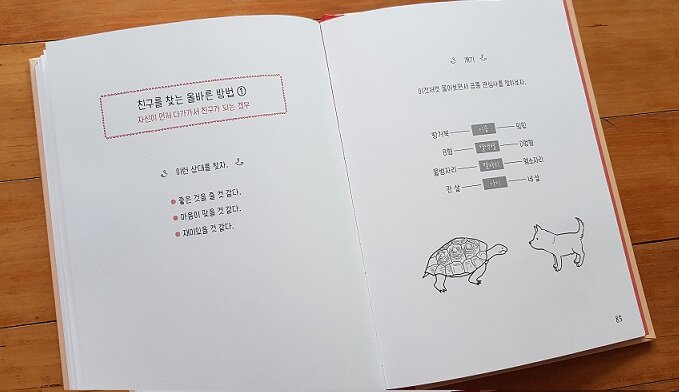 친구를 찾는 올바른 방법 ①
자신이 먼저 다가가서 친구가 되는 경우
이런 상대를 찾자.
좋은 것을 줄 것 같다.
마음이 맞을 것 같다.
재미있을 것 같다.
계기
이것저것 물어보면서 공통 관심사를 찾아보자.
이름
B형 혈액형 O형
물병자리 별자리 염소자리
나이 네 살
83